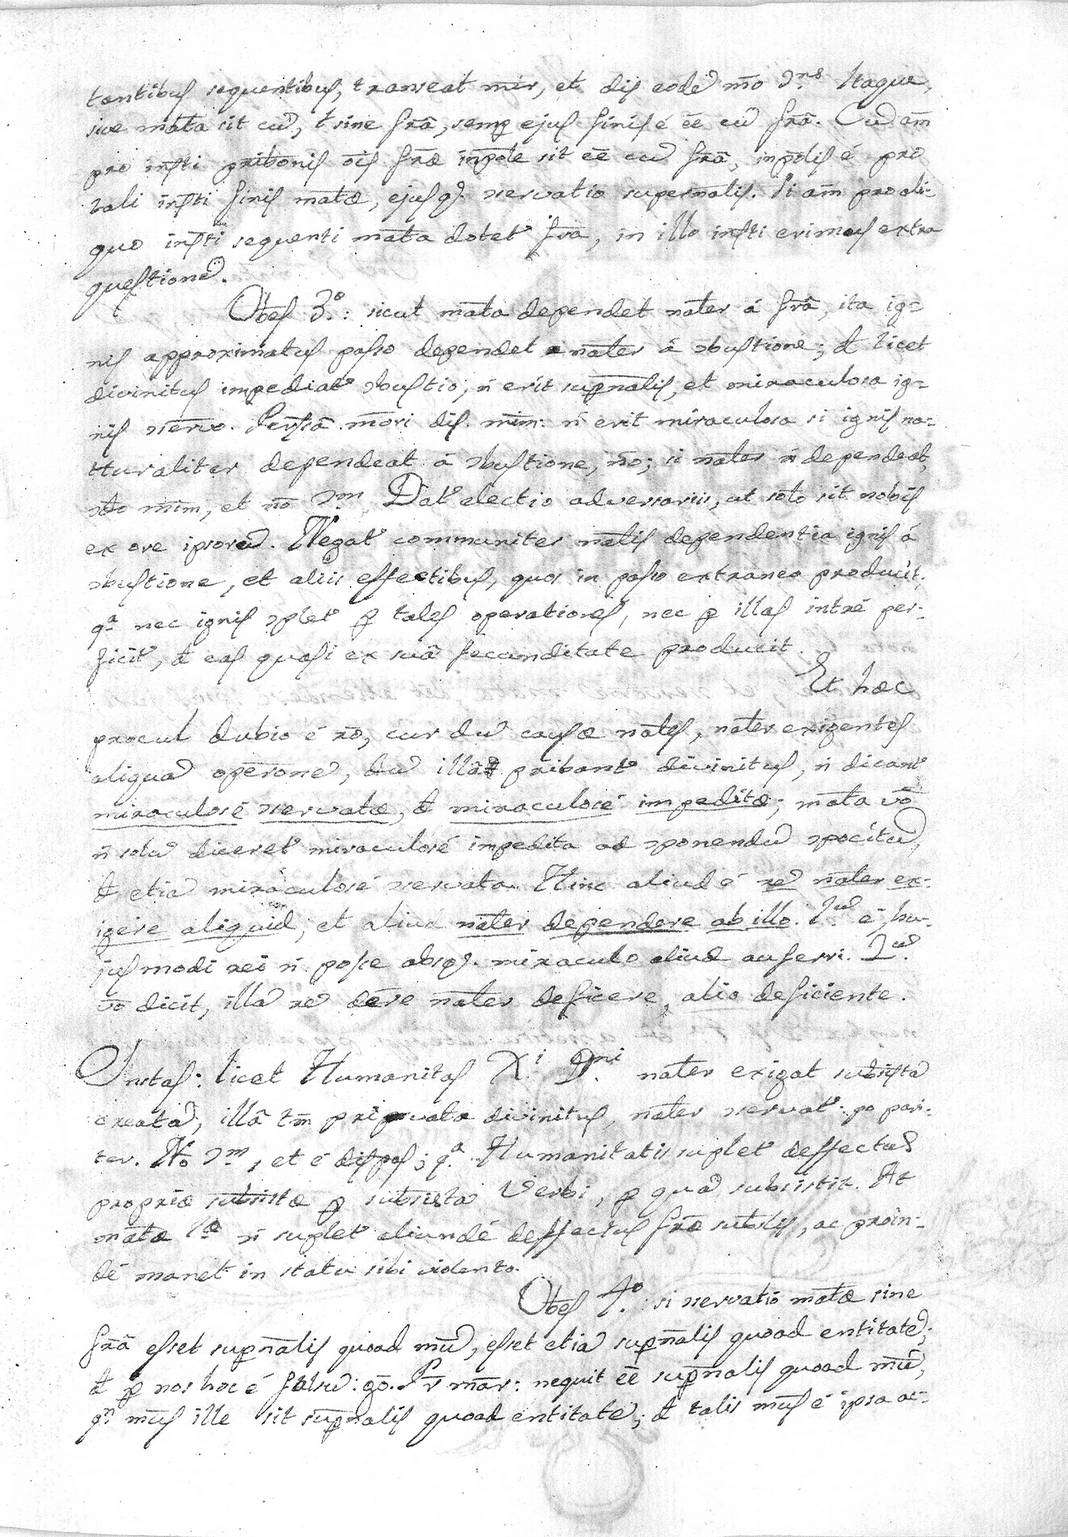 tantibus sequentibus, transeat min̄, et dis eodē mo͞o Jns. Itaque,
sive mata sit cu͂, t sine fr̄a, semp ejus finis é e͞e cū fr̄a. Cu͂ am̄
pro insti pribonis ois fr̄æ inpole sit e͞e cu͂ fr̄a, inpolis é pro
tali insti finis matæ, ejusq. servatio supernalis. Si am̄ pro ali-
quo insti sequenti mata dotet fr̄a, in illo insti erimus extra
questionē.
Obes 3.º: sicut mata dependet nater á fr̄a, ita ig-
nis approximatus passo dependet nater á ɔbustione; At licet
divinitus impediat ɔbustio, n̄ erit supnalis, et miraculosa ig-
nis ɔservo. mōri dis. min: n̄ erit miraculosa si ignis na-
turaliter dependeat á ɔbustione, no͞; si nater n̄ dependeat,
min̄, et no͞ Dat electio adversariis, ut soto sit nobis
ex ore ipsoru͂. Negat communiter nalis dependentia ignis á
ɔbustione, et aliis effectibus, quos in passo extraneo producit.
qa nec ignis ɔplet p tales operationes, nec p illas intré per-
ficit, At eas quasi ex suâ fecunditate producit.
Et hæc
procul dubio é ro͞, cur du͂ causæ nates, nater exigentes
aliqua͂ operone͂, du͂ illâ pribant divinitus, n̄ dicant
miraculosé ɔservatæ, At miraculosé impeditæ; mata vo͞
n̄ solu͂ diceret miraculosé impedita ad ɔponendu͂ ɔpocitu͂,
At etia͂ miraculosé ɔservata. Hinc aliud é re͂ nater ex-
igere aliquid; et aliud nater dependere ab illo. 1um é hu-
jusmodi rei n̄ posse absq. miraculo aliud auferri. 2um
vo͞ dicit, illa͂ re͂ dere nater deficere, alio deficiente.
Instas: licet Humanitas Xi Dni nater exigat subsista͂
creata͂, illâ tm̄ privata divinitus, nater ɔservat: go par-
ter. No͞ et é dispas; qa Humanitatis suplet deffectus
propriæ subsistæ p subsista͂ Verbi, p qua͂ subsistit. At
matæ 1æ n̄ suplet aliundé deffectus fr̄æ subtlis, ac proin-
dé manet in statu sibi violento.
Obes 4.º: si ɔservatio matæ sine
fr̄a esset supnalis quoad mu͂, esset etia͂ supnalis quoad entitate͂;
At p nos hoc é falsu͂: go. Pr mar: nequit e͞e supnalis quoad mu͂,
qn mus ille sit supnalis quoad entitate͂; At talis mus é ipsa ac-